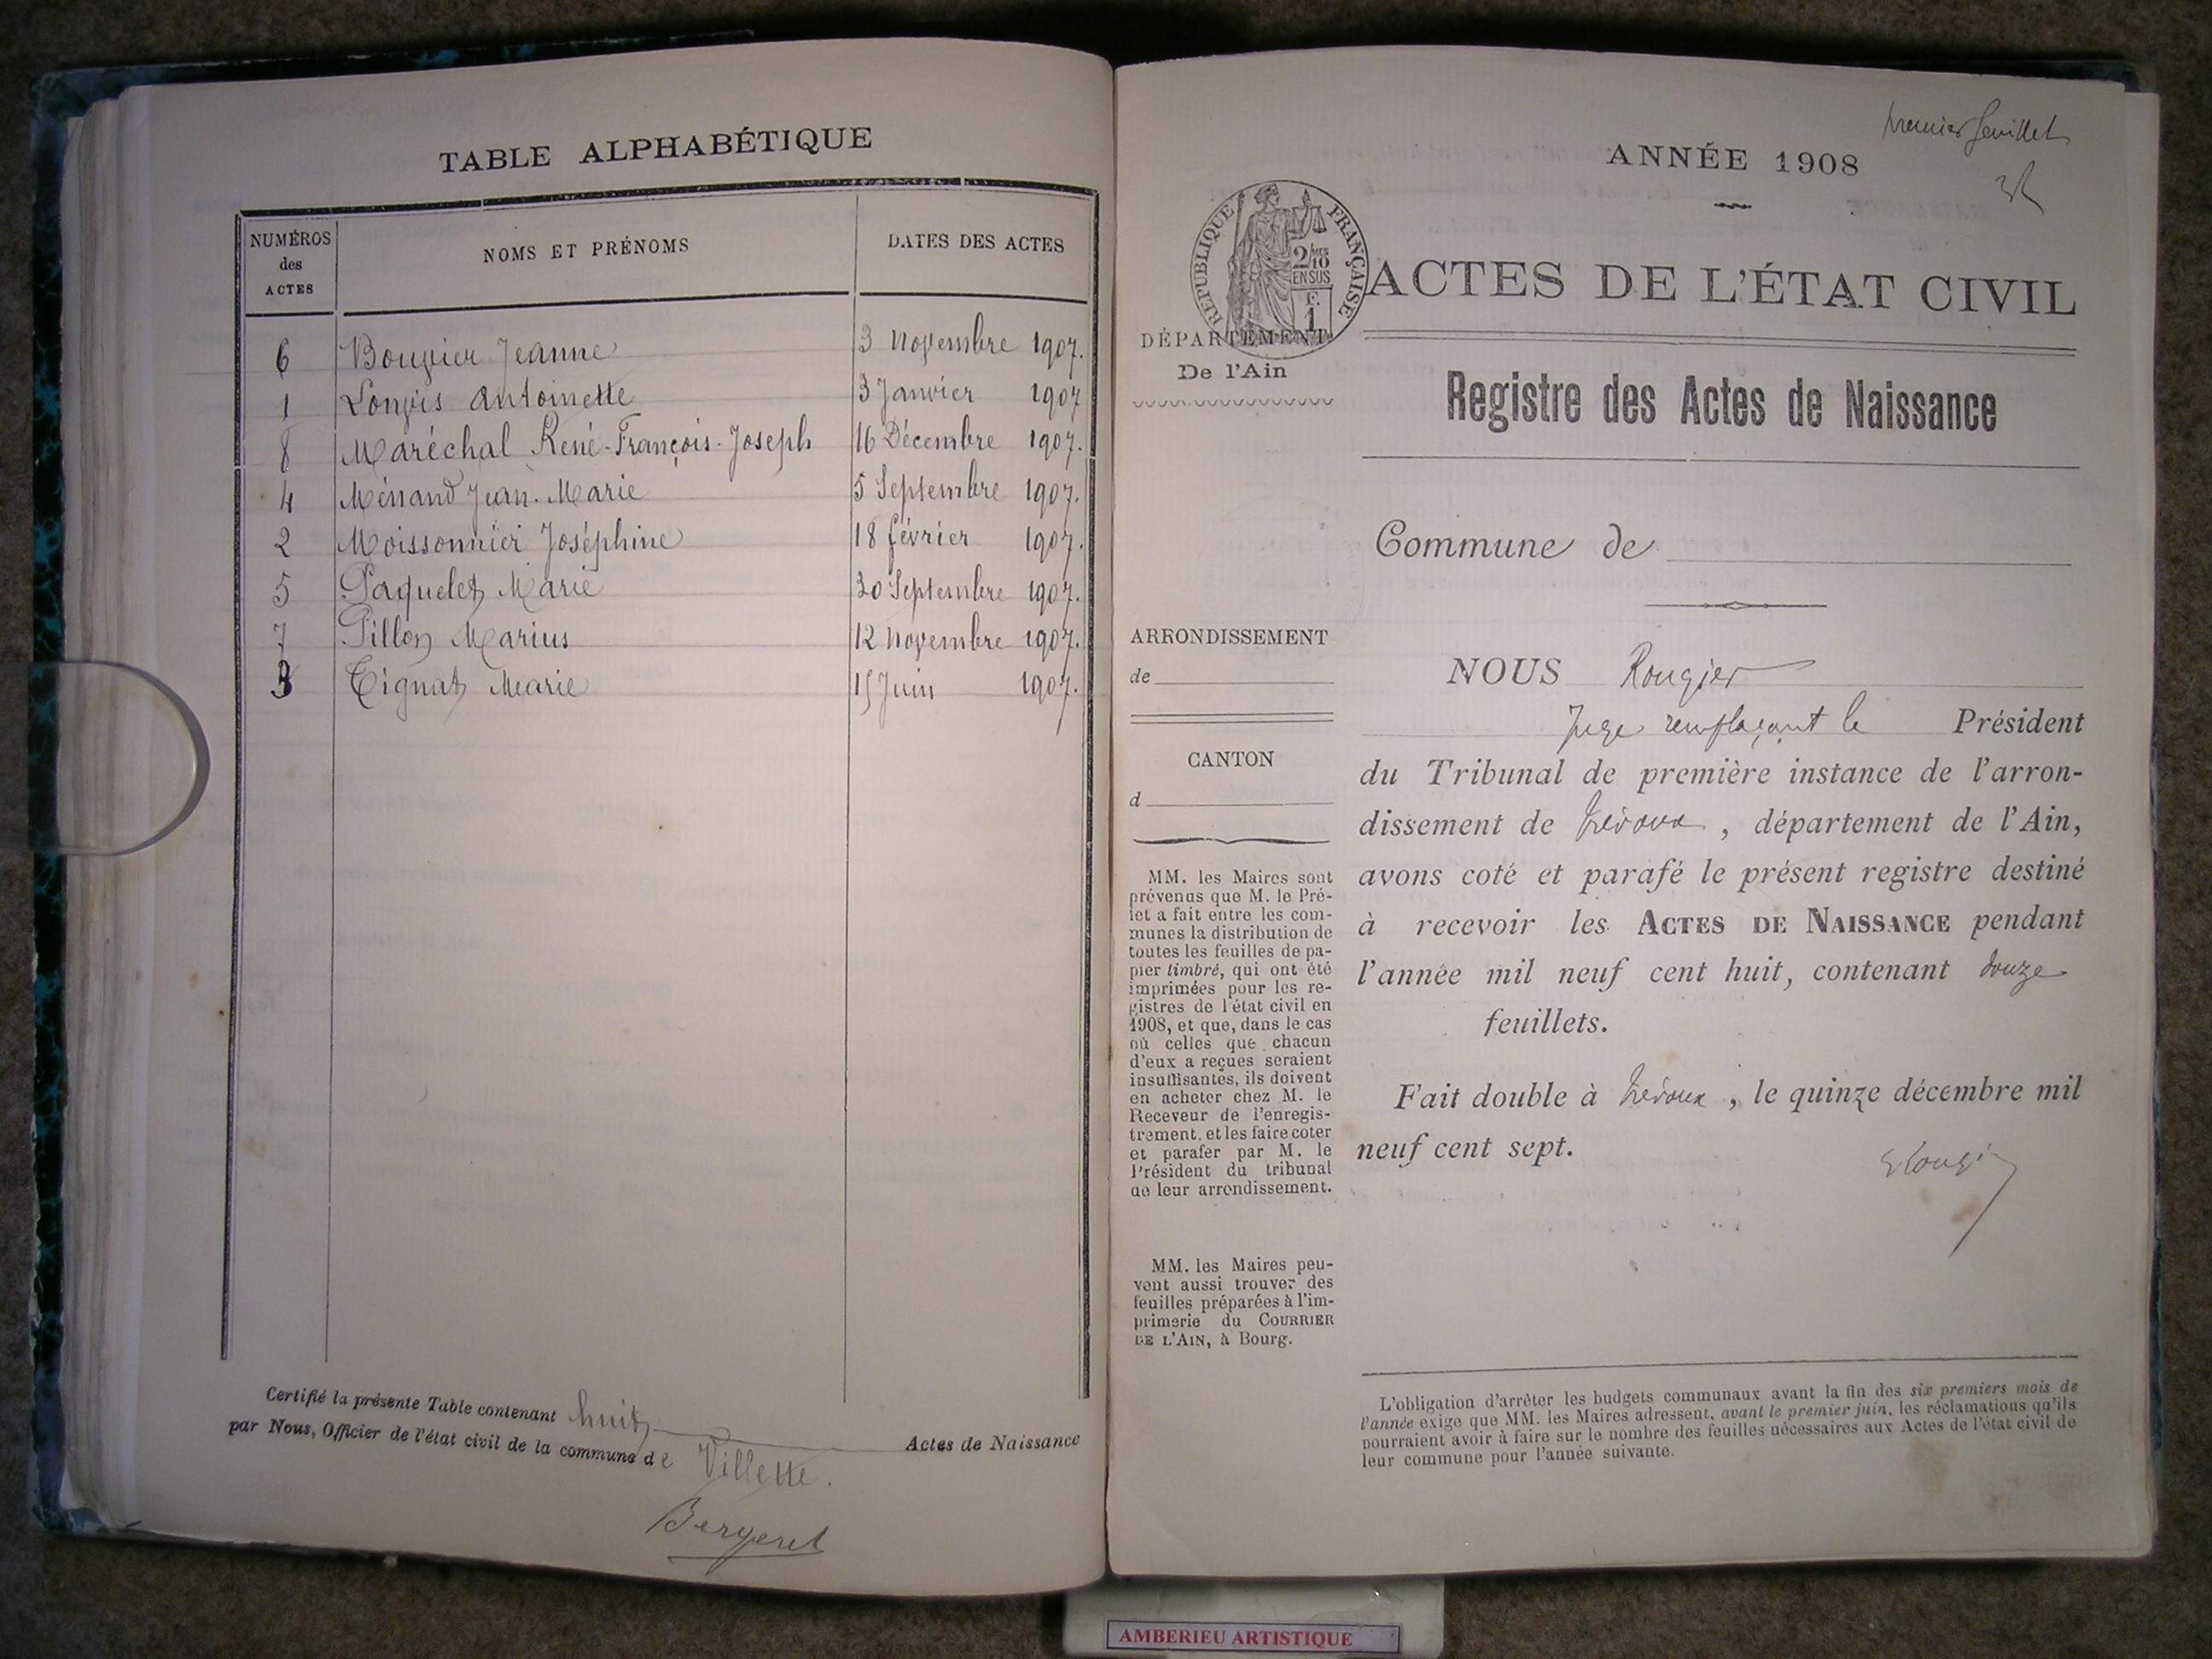 TABLE ALPHABÉTIQUE
NUMÉROS des ACTES NOMS ET PRÉNOMS DATES DES ACTES
6 Bouvier Jeanne 3 Novembre 1907.
1 Longis Antoinette 3 Janvier 1907
8 Maréchal René-François-Joseph 16 Décembre 1907.
4 Ménand Jean-Marie 5 Septembre 1907.
2 Moissonnier Joséphine 18 février 1907.
5 Paquelet Marie 30 Septembre 1907.
7 Pillon Marius 12 Novembre 1907.
3 Tignat Marie 15 Juin 1907.
Certifié la présente Table contenant huit Actes de Naissance
par Nous, Officier de l'état civil de la commune de Villette.
Bergeret
premier feuillet
ANNÉE 1908
RÉPUBLIQUE FRANÇAISE
2/10 EN SUS
F. 1
ACTES DE L'ÉTAT CIVIL
DÉPARTEMENT
De l'Ain
Registre des Actes de Naissance
Commune de
ARRONDISSEMENT
de
CANTON
d
MM. les Maires sont
prévenus que M. le Pré-
fet a fait entre les com-
munes la distribution de
toutes les feuilles de pa-
pier timbré, qui ont été
imprimées pour les re-
gistres de l'état civil en
1908, et que, dans le cas
où celles que chacun
d'eux a reçues seraient
insuffisantes, ils doivent
en acheter chez M. le
Receveur de l'enregis-
trement, et les faire coter
et parafer par M. le
Président du tribunal
de leur arrondissement.
MM. les Maires peu-
vent aussi trouver des
feuilles préparées à l'im-
primerie du COURRIER
DE L'AIN, à Bourg.
NOUS Rougier
Juge remplaçant le Président
du Tribunal de première instance de l'arron-
dissement de Trévoux, département de l'Ain,
avons coté et parafé le présent registre destiné
à recevoir les ACTES DE NAISSANCE pendant
l'année mil neuf cent huit, contenant douze
feuillets.
Fait double à Trévoux, le quinze décembre mil
neuf cent sept.
L'obligation d'arrêter les budgets communaux avant la fin des six premiers mois de
l'année exige que MM. les Maires adressent, avant le premier juin, les réclamations qu'ils
pourraient avoir à faire sur le nombre des feuilles nécessaires aux Actes de l'état civil de
leur commune pour l'année suivante.
AMBERIEU ARTISTIQUE